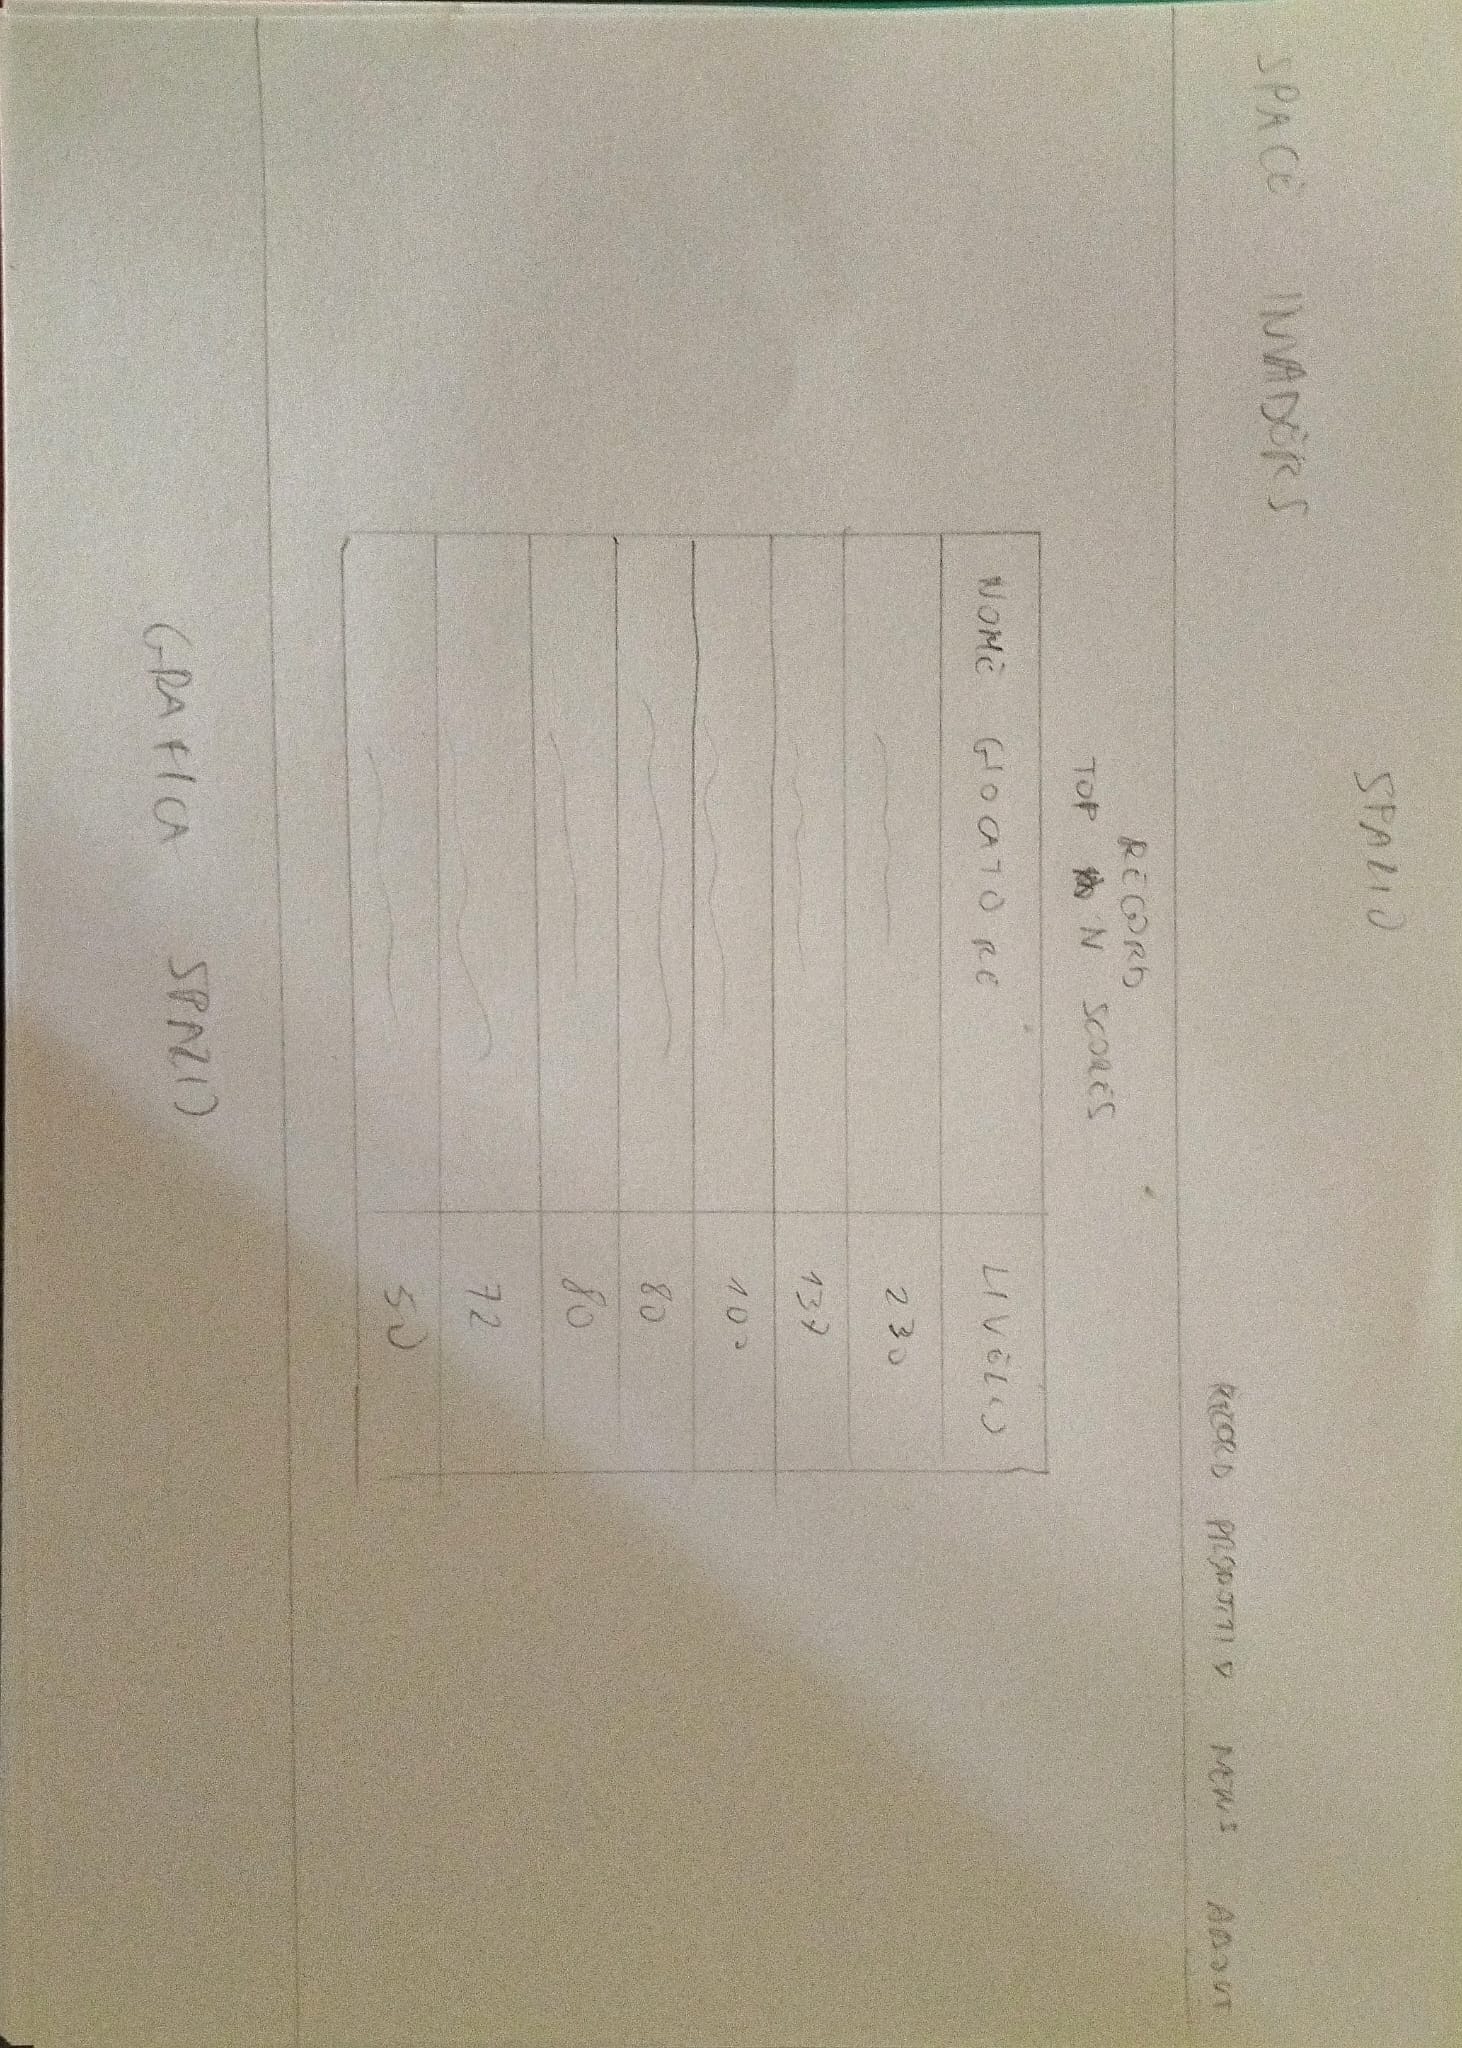 SPAZIO
SPACE INVADERS
RECORD PRODOTTI NEWS ABOUT
RECORD
TOP N SCORES
NOME GIOCATORE LIVELLO
230
137
100
80
80
72
50
GRAFICA SPAZIO